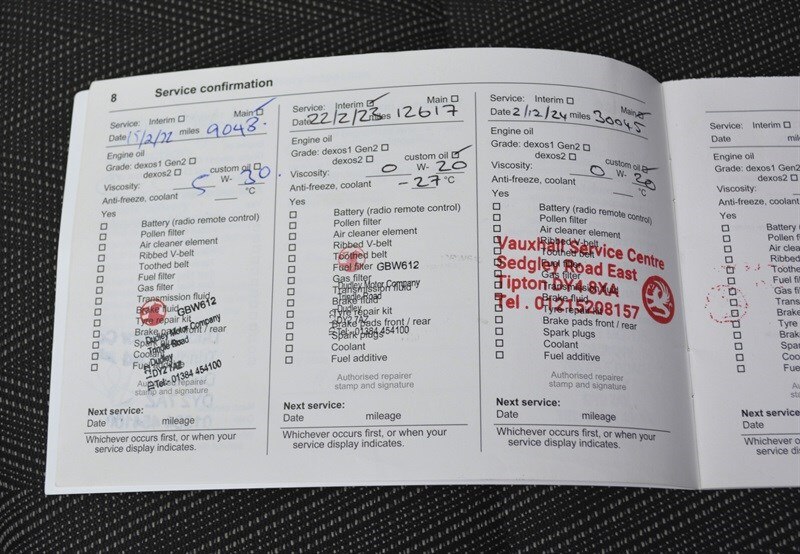 8 Service confirmation
Service: Interim Main
Date 15/2/22 miles 9043
Engine oil
Grade: dexos1 Gen2
dexos2 custom oil
Viscosity: 5 W- 30
Anti-freeze, coolant °C
Yes
Battery (radio remote control)
Pollen filter
Air cleaner element
Ribbed V-belt
Toothed belt
Fuel filter
Gas filter
Transmission fluid
Brake fluid
Tyre repair kit
Brake
Spark
Coolant
GBW612
Dudley Motor Company
Trindle Road
Dudley
DY2 7AZ
Tel: 01384 454100
Authorised repairer
stamp and signature
Next service:
Date mileage
Whichever occurs first, or when your
service display indicates.
Service: Interim Main
Date 22/2/23 miles 12617
Engine oil
Grade: dexos1 Gen2
dexos2 custom oil
Viscosity: 0 W- 20
Anti-freeze, coolant -27 °C
Yes
Battery (radio remote control)
Pollen filter
Air cleaner element
Ribbed V-belt
Toothed belt
Fuel filter GBW612
Gas filter
Transmission fluid
Brake fluid
Tyre repair kit
Brake pads front / rear
Spark plugs
Coolant
Fuel additive
Dudley Motor Company
Trindle Road
Dudley
DY2 7AZ
Tel: 01384 454100
Authorised repairer
stamp and signature
Next service:
Date mileage
Whichever occurs first, or when your
service display indicates.
Service: Interim Main
Date 2/12/24 miles 30045
Engine oil
Grade: dexos1 Gen2
dexos2 custom oil
Viscosity: 0 W- 20
Anti-freeze, coolant °C
Yes
Battery (radio remote control)
Pollen filter
Air cleaner element
Ribbed V-belt
Toothed belt
Fuel filter
Gas filter
Transmission fluid
Brake fluid
Tyre repair kit
Brake pads front / rear
Spark plugs
Coolant
Fuel additive
Vauxhall Service Centre
Sedgley Road East
Tipton DY4 8XA
Tel . 01215208157
Authorised repairer
stamp and signature
Next service:
Date mileage
Whichever occurs first, or when your
service display indicates.
Service: Interim
Date mil
Engine oil
Grade: dexos1 Gen2
dexos2
Viscosity:
Anti-freeze, coolant
Yes
Battery
Pollen f
Air clea
Ribbed
Toothed
Fuel filt
Gas filt
Transm
Brake
Tyre re
Brake
Spark
Coolan
Fuel a
Author
stamp
Next service:
Date
Whichever occurs first,
service di